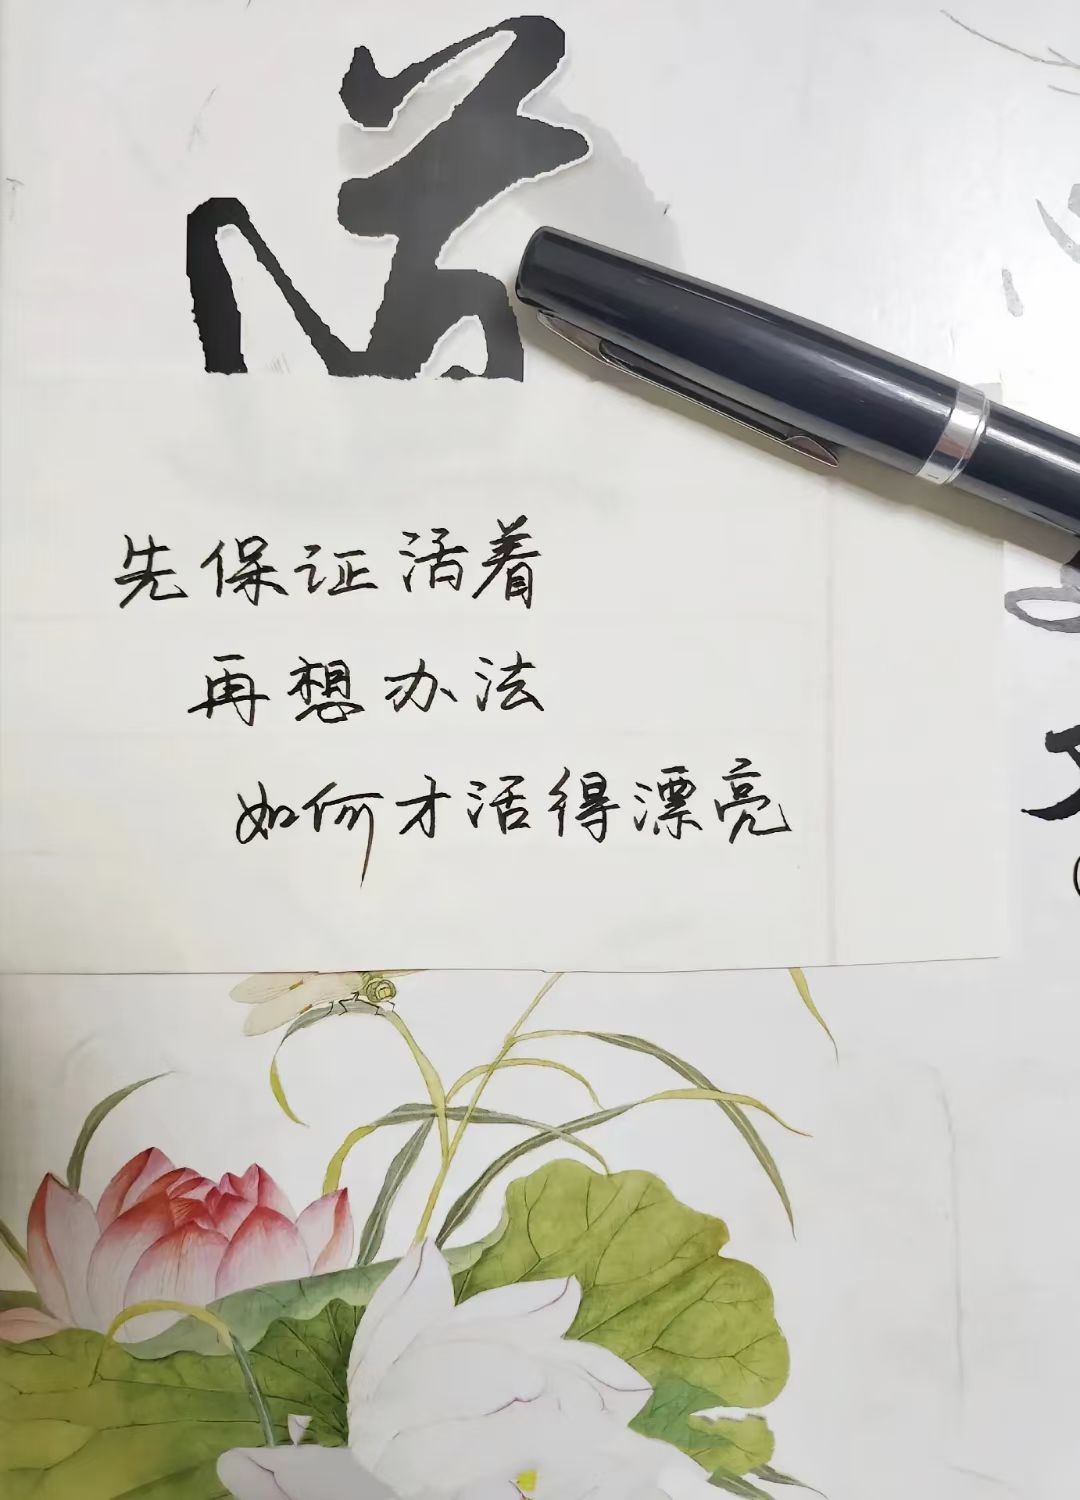 先保证活着
再想办法
如何才活得漂亮